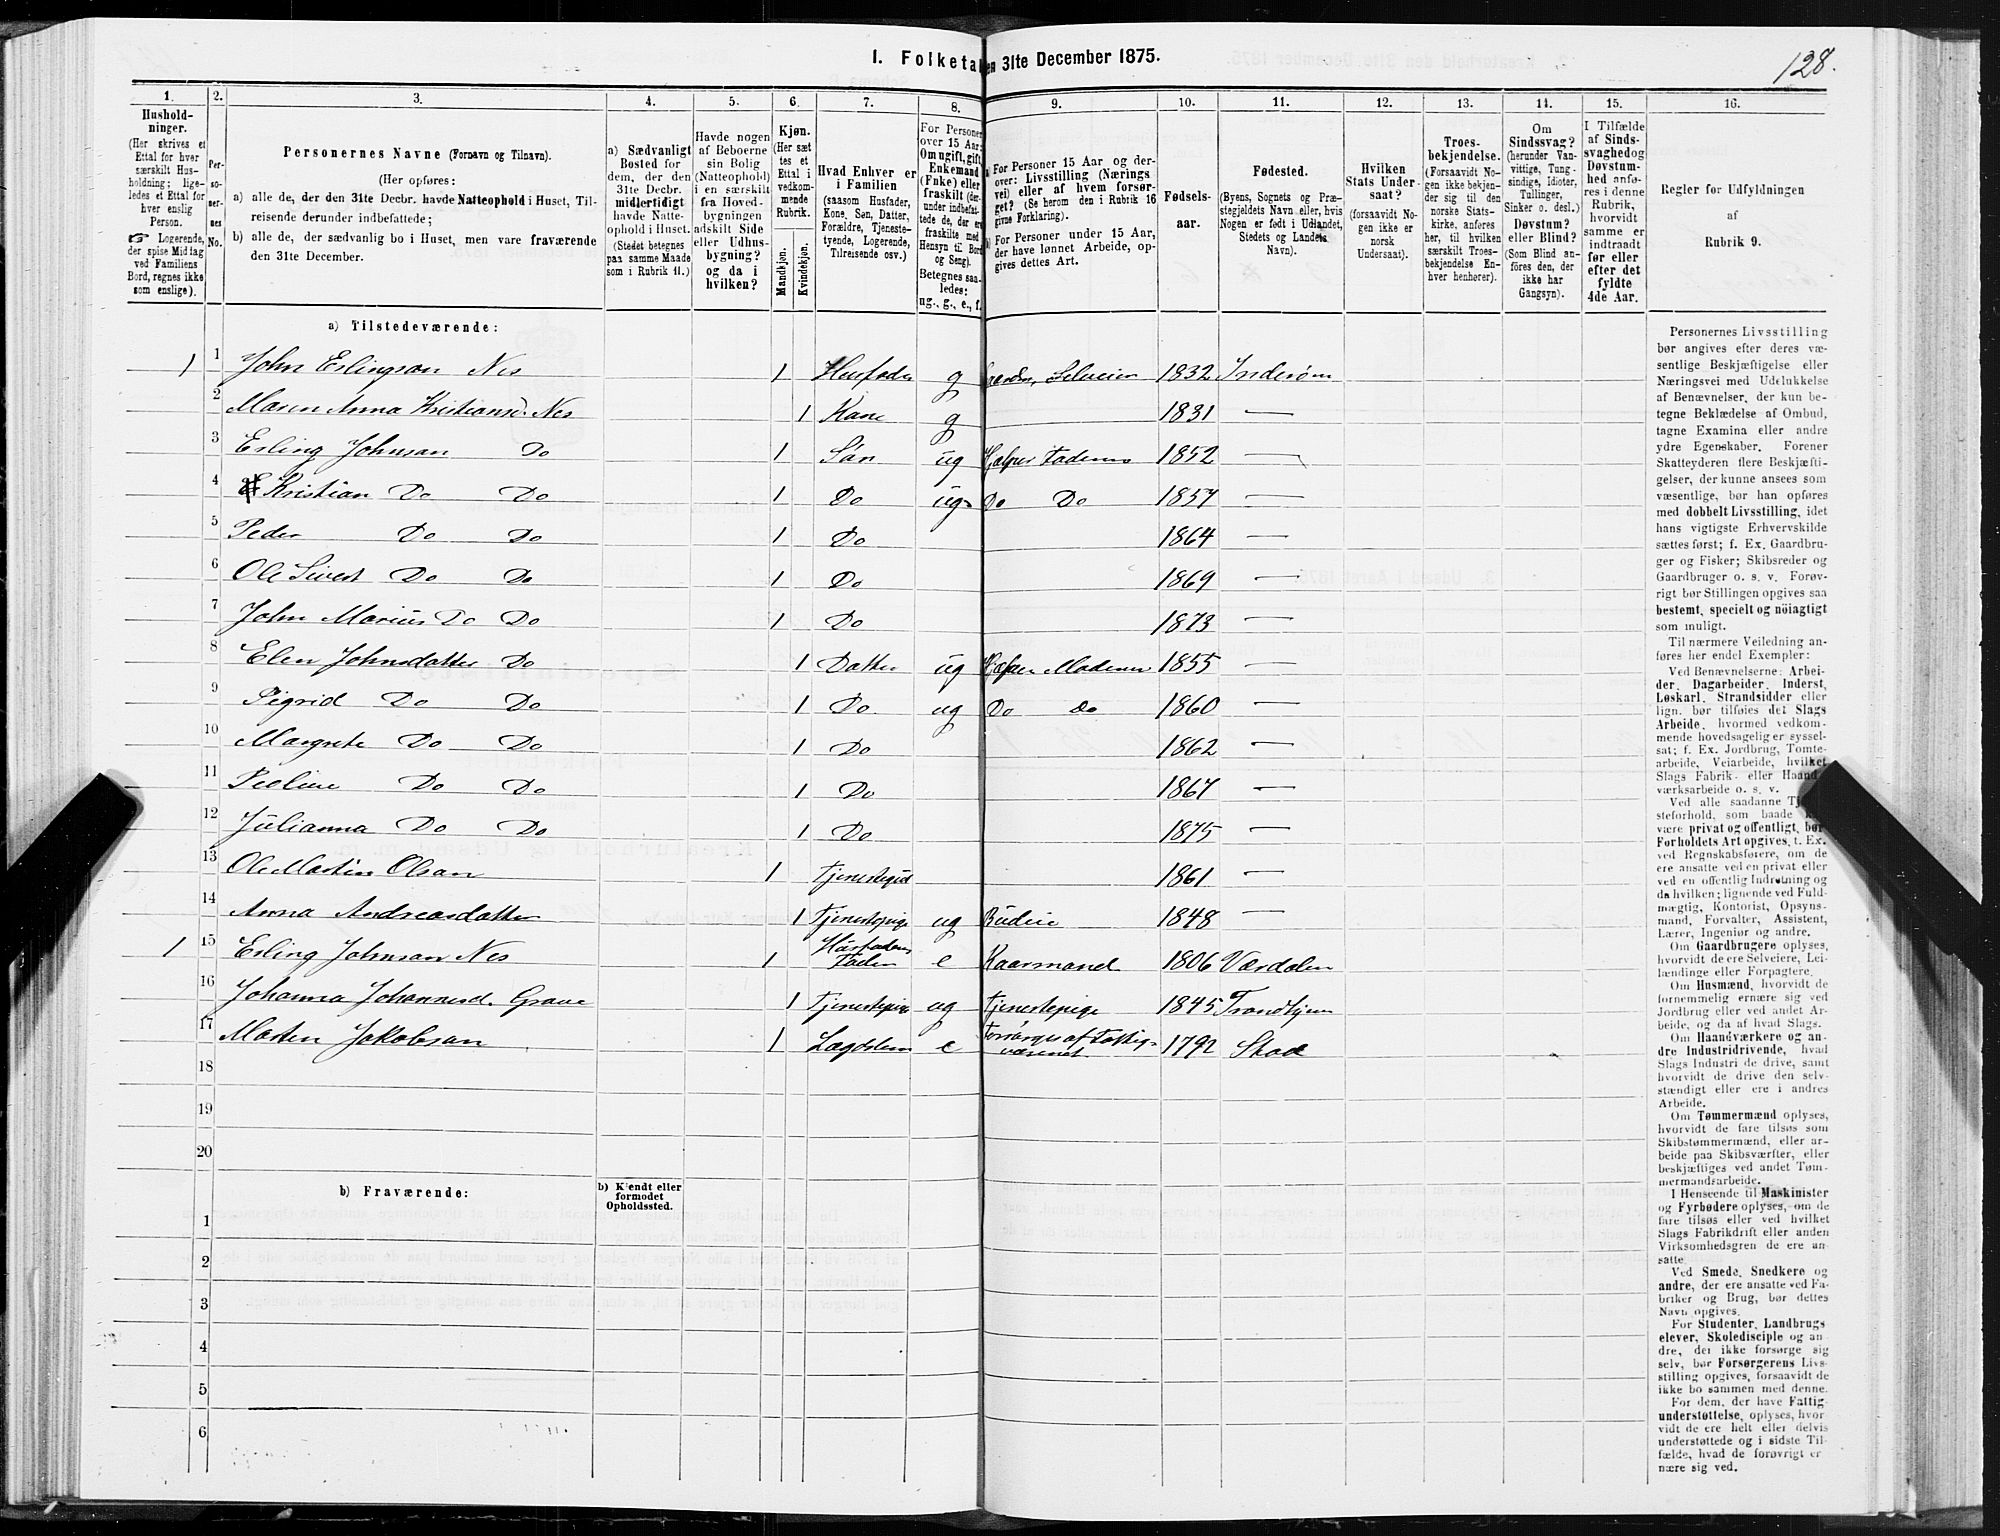 128.
I. Folketal den 31te December 1875.
1. 2. 3. 4. 5. 6. 7. 8. 9. 10. 11. 12. 13. 14. 15. 16.
Hushold-
ninger.
(Her skrives et
Ettal for hver
særskilt Hus-
holdning; lige-
ledes et Ettal for
hver enslig
Person.
☞ Logerende,
der spise Middag
ved Familiens
Bord, regnes ikke
som enslige).
Per-
so-
ner-
nes
No.
Personernes Navne (Fornavn og Tilnavn).
(Her opføres:
a) alle de, der den 31te Decbr. havde Natteophold i Huset, Til-
reisende derunder indbefattede;
b) alle de, der sædvanlig bo i Huset, men vare fraværende
den 31te December.
a) Sædvanligt
Bosted for
dem, der den
31te Decbr.
midlertidigt
havde Natte-
ophold i Huset.
(Stedet betegnes
paa samme Maade
som i Rubrik 11.)
Havde nogen
af Beboerne
sin Bolig
(Natteophold)
i en særskilt
fra Hoved-
bygningen
adskilt Side
eller Udhus-
bygning?
og da i
hvilken?
Kjøn.
(Her sæt
tes et
Ettal i
vedkom-
mende
Rubrik.
Mandkjøn.
Kvindekjøn.
Hvad Enhver er
i Familien
(saasom Husfader,
Kone, Søn, Datter,
Forældre, Tjeneste-
tyende, Logerende,
Tilreisende osv.)
For Personer
over 15 Aar:
Om ugift, gift,
Enkemand
(Enke) eller
fraskilt (der-
under indbefat-
tede de, der ere
fraskilte med
Hensyn til Bord
og Seng).
Betegnes saa-
ledes:
ug., g., e., f.
a) For Personer 15 Aar og der-
over: Livsstilling (Nærings
vei) eller af hvem forsør-
get? (Se herom den i Rubrik 16
givne Forklaring).
b) For Personer under 15 Aar,
der have lønnet Arbeide, op-
gives dettes Art.
Fødsels-
aar.
Fødested.
(Byens, Sognets og Præ-
stegjeldets Navn eller, hvis
Nogen er født i Udlandet,
Stedets og Landets
Navn).
Hvilken
Stats Under-
saat?
(forsaavidt No-
gen ikke er
norsk
Undersaat).
Troes-
bekjendelse.
(Forsaavidt No-
gen ikke bekjen-
der sig til den
norske Stats-
kirke, anføres
her, til hvilken
særskilt Troes-
bekjendelse En-
hver henhører).
Om
Sindssvag?
(herunder Van-
vittige, Tung-
sindige, Idioter,
Tullinger,
Sinker o. desl.)
Døvstum?
eller Blind?
(Som Blind an-
føres den, der
ikke har
Gangsyn).
I Tilfælde
af Sinds-
svaghed og
Døvstum-
hed anfø-
res i denne
Rubrik,
hvorvidt
samme er
indtraadt
før eller
efter det
fyldte
4de Aar.
Regler for Udfyldningen
af
Rubrik 9.
a) Tilstedeværende:
1 1 John Erlingson Nes 1 Husfader g Gaardbr. Selveier 1832 Inderøen
2 Maren Anna Kristiansd. Nes 1 Kone g 1831 —
3 Erling Johnsan Do 1 Søn ug Hjælper Faderen 1852 —
4 Kristian Do Do 1 Do ug Do Do 1857 —
5 Peder Do Do 1 Do 1864 —
6 Ole Sivert Do Do 1 Do 1869 —
7 John Marius Do Do 1 Do 1873 —
8 Elen Johnsdatter Do 1 Datter ug Hjælper Moderen 1855 —
9 Sigrid Do Do 1 Do ug Do do 1860 —
10 Margrete Do Do 1 Do 1862 —
11 Peoline Do Do 1 Do 1867 —
12 Julianna Do Do 1 Do 1875 —
13 Ole Martin Olsan 1 Tjenestegut 1861 —
14 Anna Andreasdatter 1 Tjenestepige ug Budeie 1848 —
1 15 Erling Johnsan Nes 1 Husfaderens Fader e Kaarmand 1806 Værdalen
16 Johanna Johannesd. Grave 1 Tjenestepige ug Tjenestepige 1845 Trondhjem
17 Morten Jakobsan 1 Lægdslem e Forsørges af Fattigvæsenet 1792 Skod
18
19
20
b) Fraværende:
b) Kjendt eller
formodet
Opholdssted.
1
2
3
4
5
6
Personernes Livsstilling
bør angives efter deres væ-
sentlige Beskjæftigelse eller
Næringsvei med Udelukkelse
af Benævnelser, der kun be-
tegne Beklædelse af Ombud,
tagne Examina eller andre
ydre Egenskaber. Forener
Skatteyderen flere Beskjæfti-
gelser, der kunne ansees som
væsentlige, bør han opføres
med dobbelt Livsstilling, idet
hans vigtigste Erhvervskilde
sættes først; f. Ex. Gaardbru-
ger og Fisker; Skibsreder og
Gaardbruger o. s. v. Forøv-
rigt bør Stillingen opgives saa
bestemt, specielt og nöiagtigt
som muligt.
Til nærmere Veiledning an-
føres her endel Exempler:
Ved Benævnelserne: Arbei-
der, Dagarbeider, Inderst,
Løskarl, Strandsidder eller
lign. bør tilføies det Slags
Arbeide, hvormed vedkom-
mende hovedsagelig er syssel-
sat; f. Ex. Jordbrug, Tomte-
arbeide, Veiarbeide, hvilket
Slags Fabrik- eller Haand-
værksarbeide o. s. v.
Ved alle saadanne Tje-
steforhold, som baade kan
være privat og offentligt, bør
Forholdets Art opgives, t. Ex.
ved Regnskabsførere, om de
ere ansatte ved en privat eller
ved en offentlig Indretning og
da hvilken; lignende ved Fuld-
mægtig, Kontorist, Opsyns-
mand, Forvalter, Assistent,
Lærer, Ingeniør og andre.
Om Gaardbrugere oplyses,
hvorvidt de ere Selveiere, Lei-
lændinge eller Forpagtere.
Om Husmænd, hvorvidt de
fornemmelig ernære sig ved
Jordbrug eller ved andet Ar-
beide, og da af hvad Slags.
Om Haandværkere og an-
dre Industridrivende, hvad
Slags Industri de drive, samt
hvorvidt de drive den selv-
stændigt eller ere i andres
Arbeide.
Om Tømmermænd oplyses,
hvorvidt de fare tilsøs som
Skibstømmermænd, eller ar-
beide paa Skibsværfter, eller
beskjæftiges ved andet Tøm-
mermandsarbeide.
I Henseende til Maskinister
og Fyrbødere oplyses, om de
fare tilsøs eller ved hvilket
Slags Fabrikdrift eller anden
Virksomhedsgren de ere an-
satte.
Ved Smede, Snedkere og
andre, der ere ansatte ved Fa-
briker og Brug, bør dettes
Navn opgives.
For Studenter, Landbrugs
elever, Skoledisciple og an-
dre, der ikke forsørge sig
selv, bør Forsørgerens Livs-
stilling opgives, forsaavidt de
ikke bo sammen med denne.
For dem, der have Fattig-
understøttelse, oplyses, hvor-
vidt de ere helt eller delvis
understøttede og i sidste Til-
fælde, hvad de forøvrigt er-
nære sig ved.